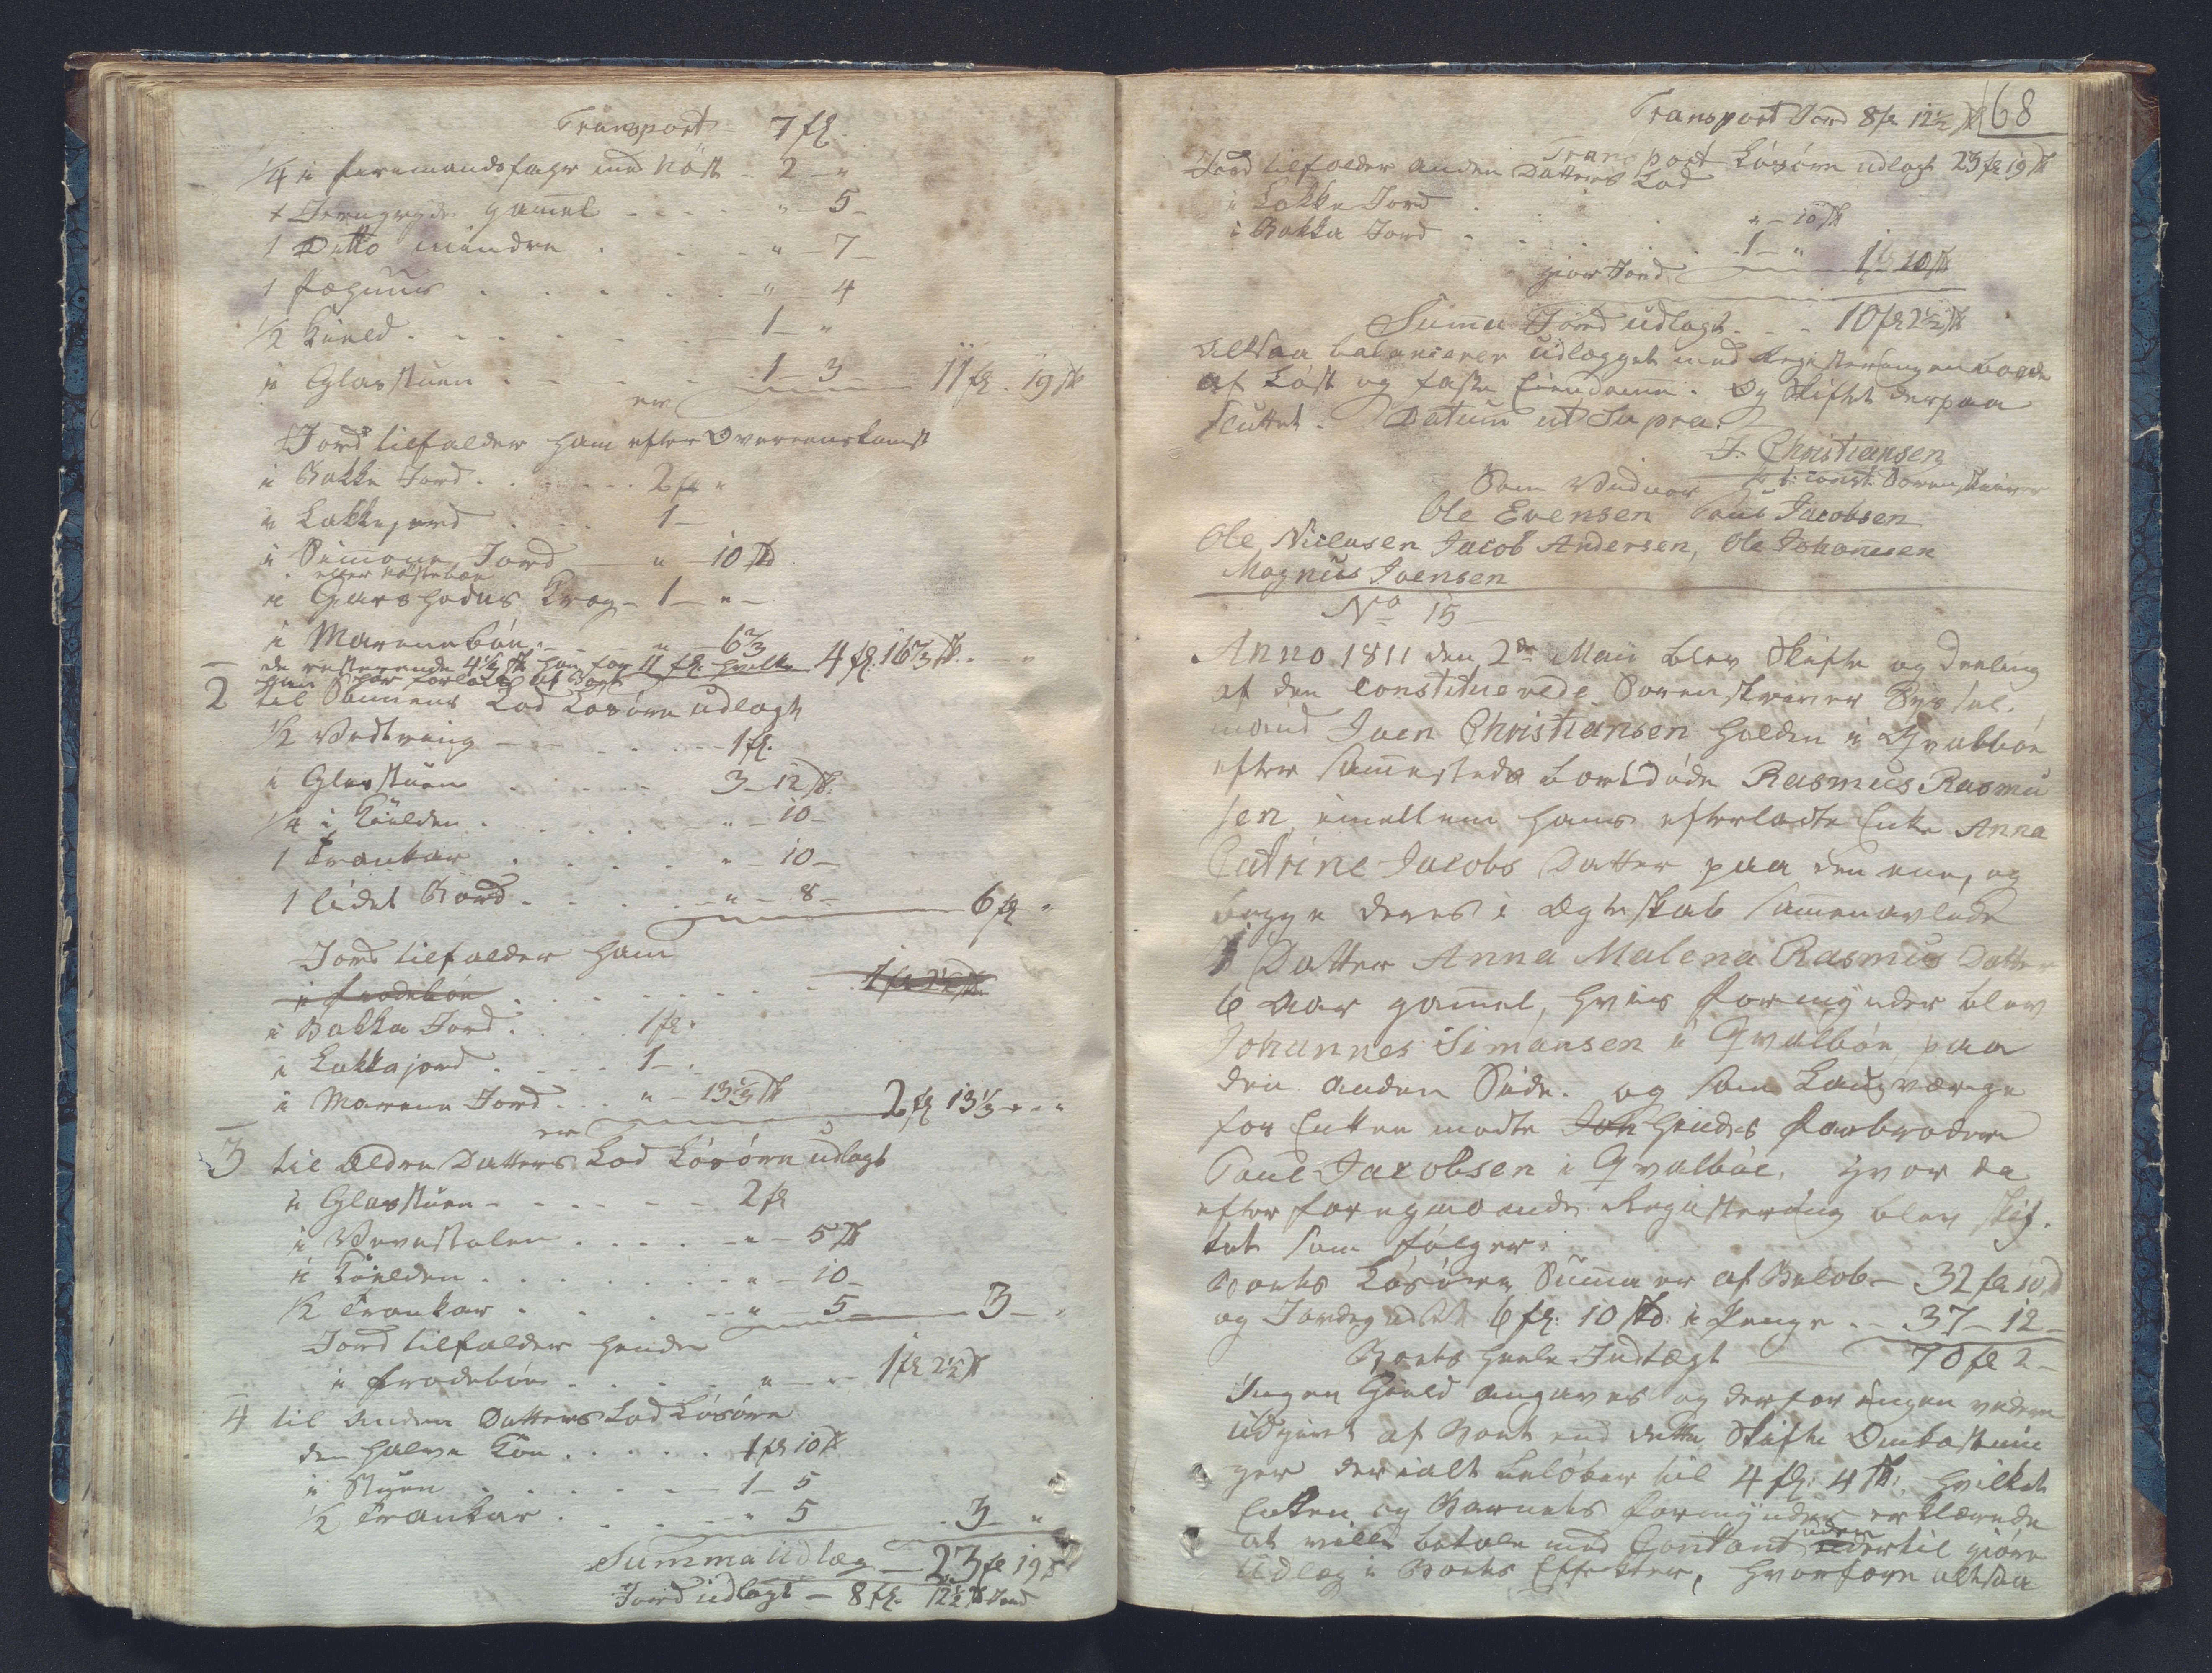 Transport - 7 fl.
1/4 i firemandsfahr med Nöst - 2 - "
1 Jerngryde gamel - - - - " 5 -
1 Ditto mindre . . . " - 7 -
1 fæhuus . . . . . " - 4
1/2 Kield . . . . . 1 - "
i Glasstuen . . . . 1 - 3 11 fl. 19 sk
er
Jord tilfalder ham efter Overeenskomst
i Bakke Jord . . . . . 2 fl "
i Lakkejord . . . 1 -
i Simmone Jord - " - 10 sk
eller
i Gars Krog - 1 - " -
i Mareneböen . . - " - 6 2/3
de resterende 4 1/2 sk han for 4 fl. hvilke 4 fl. 16 2/3 sk. "
af Boet
2 til Sönnens Lod Lösöre udlagt
1/2 - - - - - - 1 fl.
i Glasstuen . . . . . 3 - 12 sk.
1/4 i Kielden . . . . " - 10 -
1 Trankar . . . . " - 10 -
1 lidet Bord . . . . " - 8 - 6 fl "
Jord tilfalder ham
i Frodeböe . . . . . . 1 fl 2 1/2 sk
i Bakka Jord . . . . 1 fl.
i Lakkajord . . . . 1 - .
i Marene Jord . . " - 13 1/3 sk 2 fl 13 1/3 " "
er
3 til Eldre Datters Lod Lösöre udlagt
i Glasstuen - - - - - - 2 fl
i Vevestolen . . . . " - 5 sk
i Kielden . . . . . . " - 10 -
1/2 Trankar . . . . - " 5 - 3 - "
Jord tilfalder hende
i Frodeböe . . . . " - " 1 fl 2 1/2 sk
4 til Anden Datters Lod Lösöre
den halve Koe . . . . . 1 fl 10 sk
i Stuen . . . . . - 1 - 5
1/2 Trankar . . . . - " 5 3 - "
Summa Udlæg - 23 fl 19 sk
Jord udlagt - 8 fl. 12 1/2 sk Jord
Transport Jord 8 fl 12 1/2 sk 68
Transport Lösöre udlagt 23 fl 19 sk
Jord tilfalder anden Datters Lod
i Lakke Jord . . . . " - 10 sk
i Bakka Jord . . . . 1 - "
giör Jord 1 fl 10 sk
Summa Jord udlagt . . - 10 fl 2 1/2 sk
Altsaa balancerer Udlægget med Registeringen baade
af Löst og faste Eiendomme. Og Skiftet derpaa
sluttet. Datum ut Supra.
J. Christiansen
Som Vidner p. t. const. Sorenskriver
Ole Evensen Poul Jacobsen
Ole Niclasen Jacob Andersen, Ole Johannesen
Magnus Joensen
No 15
Anno 1811 den 2den Maii blev Skifte og Deeling
af den Constituerede Sorenskriver Syssel-
mand Joen Christiansen holden i Qvalböe
efter sammesteds bortdöde Rasmus Rasmu
sen, imellem hans efterladte Enke Anna
Catrine Jacobs Datter paa den ene, og
begge deres i Ægteskab sammenavlede
1 Datter Anna Malena Rasmus Datter
6 Aar gamel, hvis Formynder blev
Johannes Simonsen i Qvalböe, paa
den anden Side. og som Laugværge
for Enken mödte Joh hendes Farbroder
Poul Jacobsen i Qvalböe. hvor da
efter foregaaende Registering blev skif-
tet som fölger:
Boets Lösöre Summa er af Belöb - 32 fl 10 sk
og Jordegods 6 fl: 10 sk i Penge - - 37 - 12 -
Boets heele Indtægt 70 fl 2 -
Ingen Gield angaves og derfor ingen videre
Udgivt af Boet end dette Skifte Omkostnin
ger der i alt belöber til 4 fl: 4 sk:, hvilket
Enken og Barnets Formynder erklærede
at ville betale med Contant uden dertil giöre
Udlæg i Boets Effecter, hvorfore altsaa